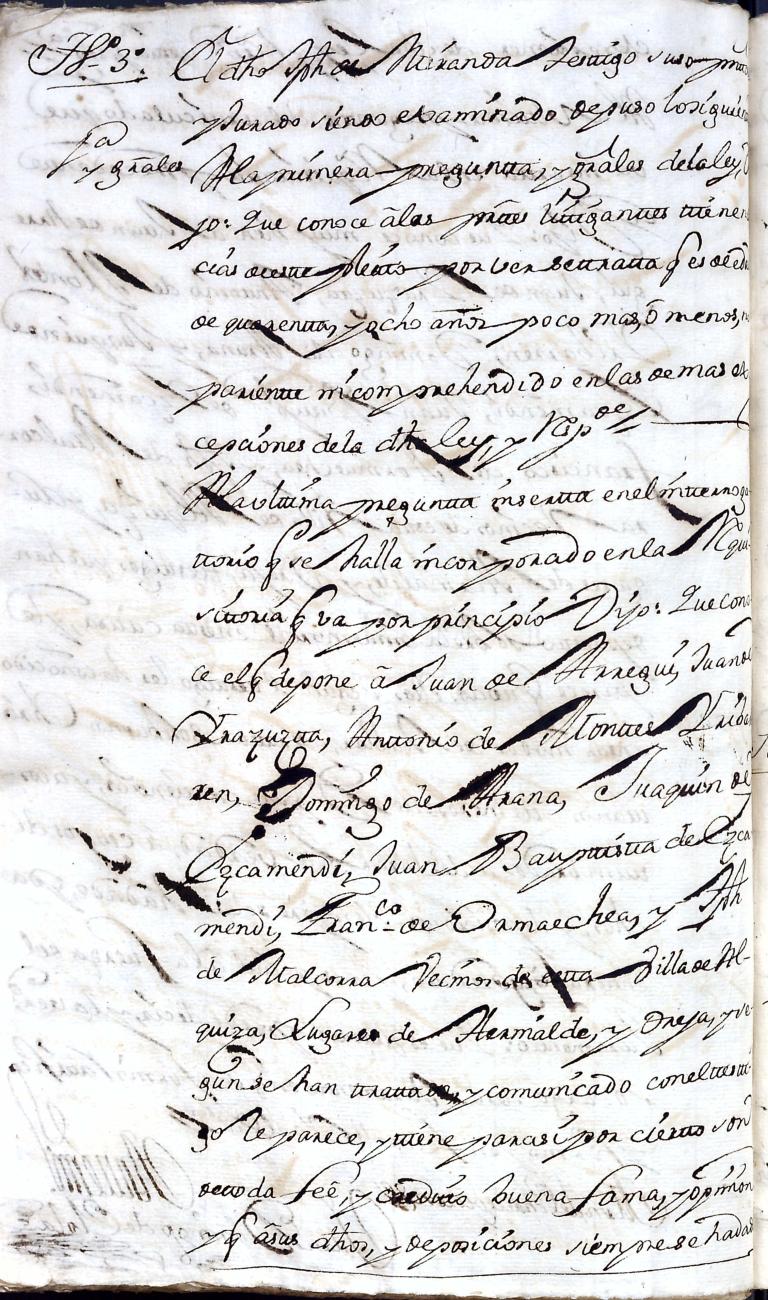 Ttº. 3º. El dho Jph de Miranda Testigo suso
y Jurado siendo examinado depuso lo siguien
y grãles A la primera pregunta, y grãles de la ley,
jo: Que conoce â las partes litigantes tiene
cias de este pleito por ver se tratta q es de
de quarentta, y ocho años poco mas, ô menos,
pariente ni comprehendido en las de mas ex
cepciones de la dha ley, y Respde
A la vltima pregunta insertta en el intterroga
ttorio q se halla incorporado en la Requi
sittoria q va por principio Dijo: Que cono
ce el q depone â Juan de Arregui, Juan de
Yrazuzta, Anttonio de Montes Yriba
ren, Domingo de Arana, Juaquin de
Ezcamendi, Juan Bauptista de Ezca
mendi, Franco. de Ormaechea, y Jph
de Malcorra Vecinos de estta Villa de Al-
quiza, Lugares de Hernialde, y Oreja, y se
gun se han trattado, y comunicado con el testi
go le parece, y tiene para si por cierto son
de toda feê, y credito buena fama, y opinion
y q â sus dhos, y deposiciones siempre se ha dado